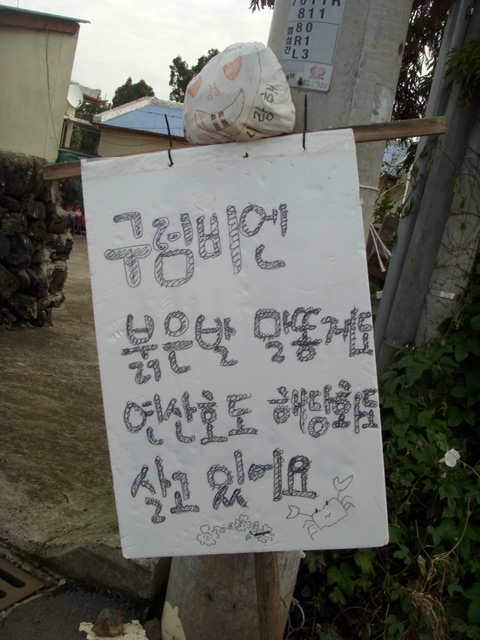 811
80
R1
L3
구럼비엔
붉은발 말똥게도
연산호도 해당화도
살고 있어요